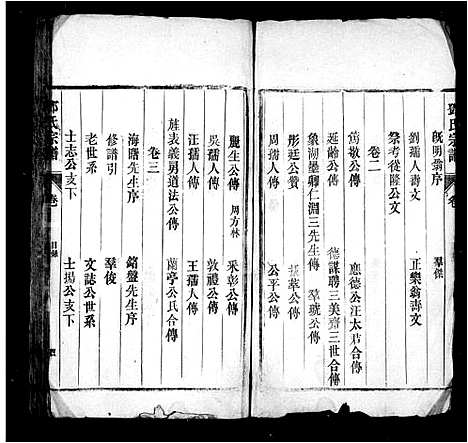 氏宗譜
卷
既明翁序
羣傑
劉孺人壽文
正樂翁壽文
祭考從隆公文
卷二
篤敬公傳
應德公汪太君合傳
延齡公傳
德謀聘三美齊三世合傳
象湖墨卿仁淵三先生傳
羣琥公傳
彤廷公贊
公傳
吳孺人傳
公平公傳
麗生公傳
周方林
采彰公傳
吳孺人傳
敦禮公傳
汪孺人傳
王孺人傳
旌表義男道法公傳
蘭亭公氏合傳
卷三
海曙先生序
銘盤先生序
修譜引
羣俊
老世系
文誌公世系
士志公支下
士揚公支下
氏宗譜
卷
目錄